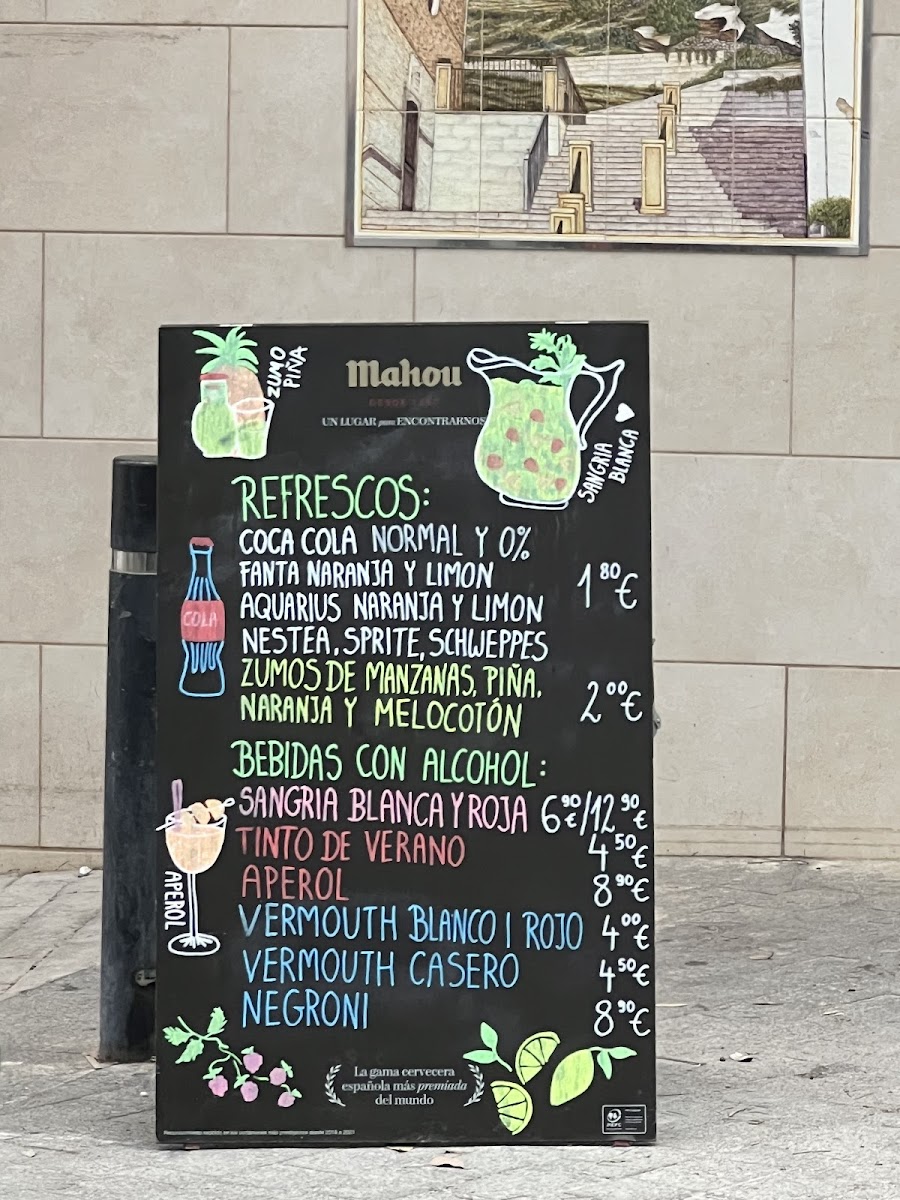 ZUMO
PIÑA
Mahou
UN LUGAR para ENCONTRARNOS
SANGRIA
BLANCA
REFRESCOS:
COCA COLA NORMAL Y 0%
FANTA NARANJA Y LIMON
AQUARIUS NARANJA Y LIMON
NESTEA, SPRITE, SCHWEPPES
1 80 €
COLA
ZUMOS DE MANZANAS, PIÑA,
NARANJA Y MELOCOTÓN
2 00 €
BEBIDAS CON ALCOHOL:
SANGRIA BLANCA Y ROJA 6 90 €/12 90 €
TINTO DE VERANO 4 50 €
APEROL 8 90 €
VERMOUTH BLANCO | ROJO 4 00 €
VERMOUTH CASERO 4 50 €
NEGRONI 8 90 €
APEROL
La gama cervecera
española más premiada
del mundo